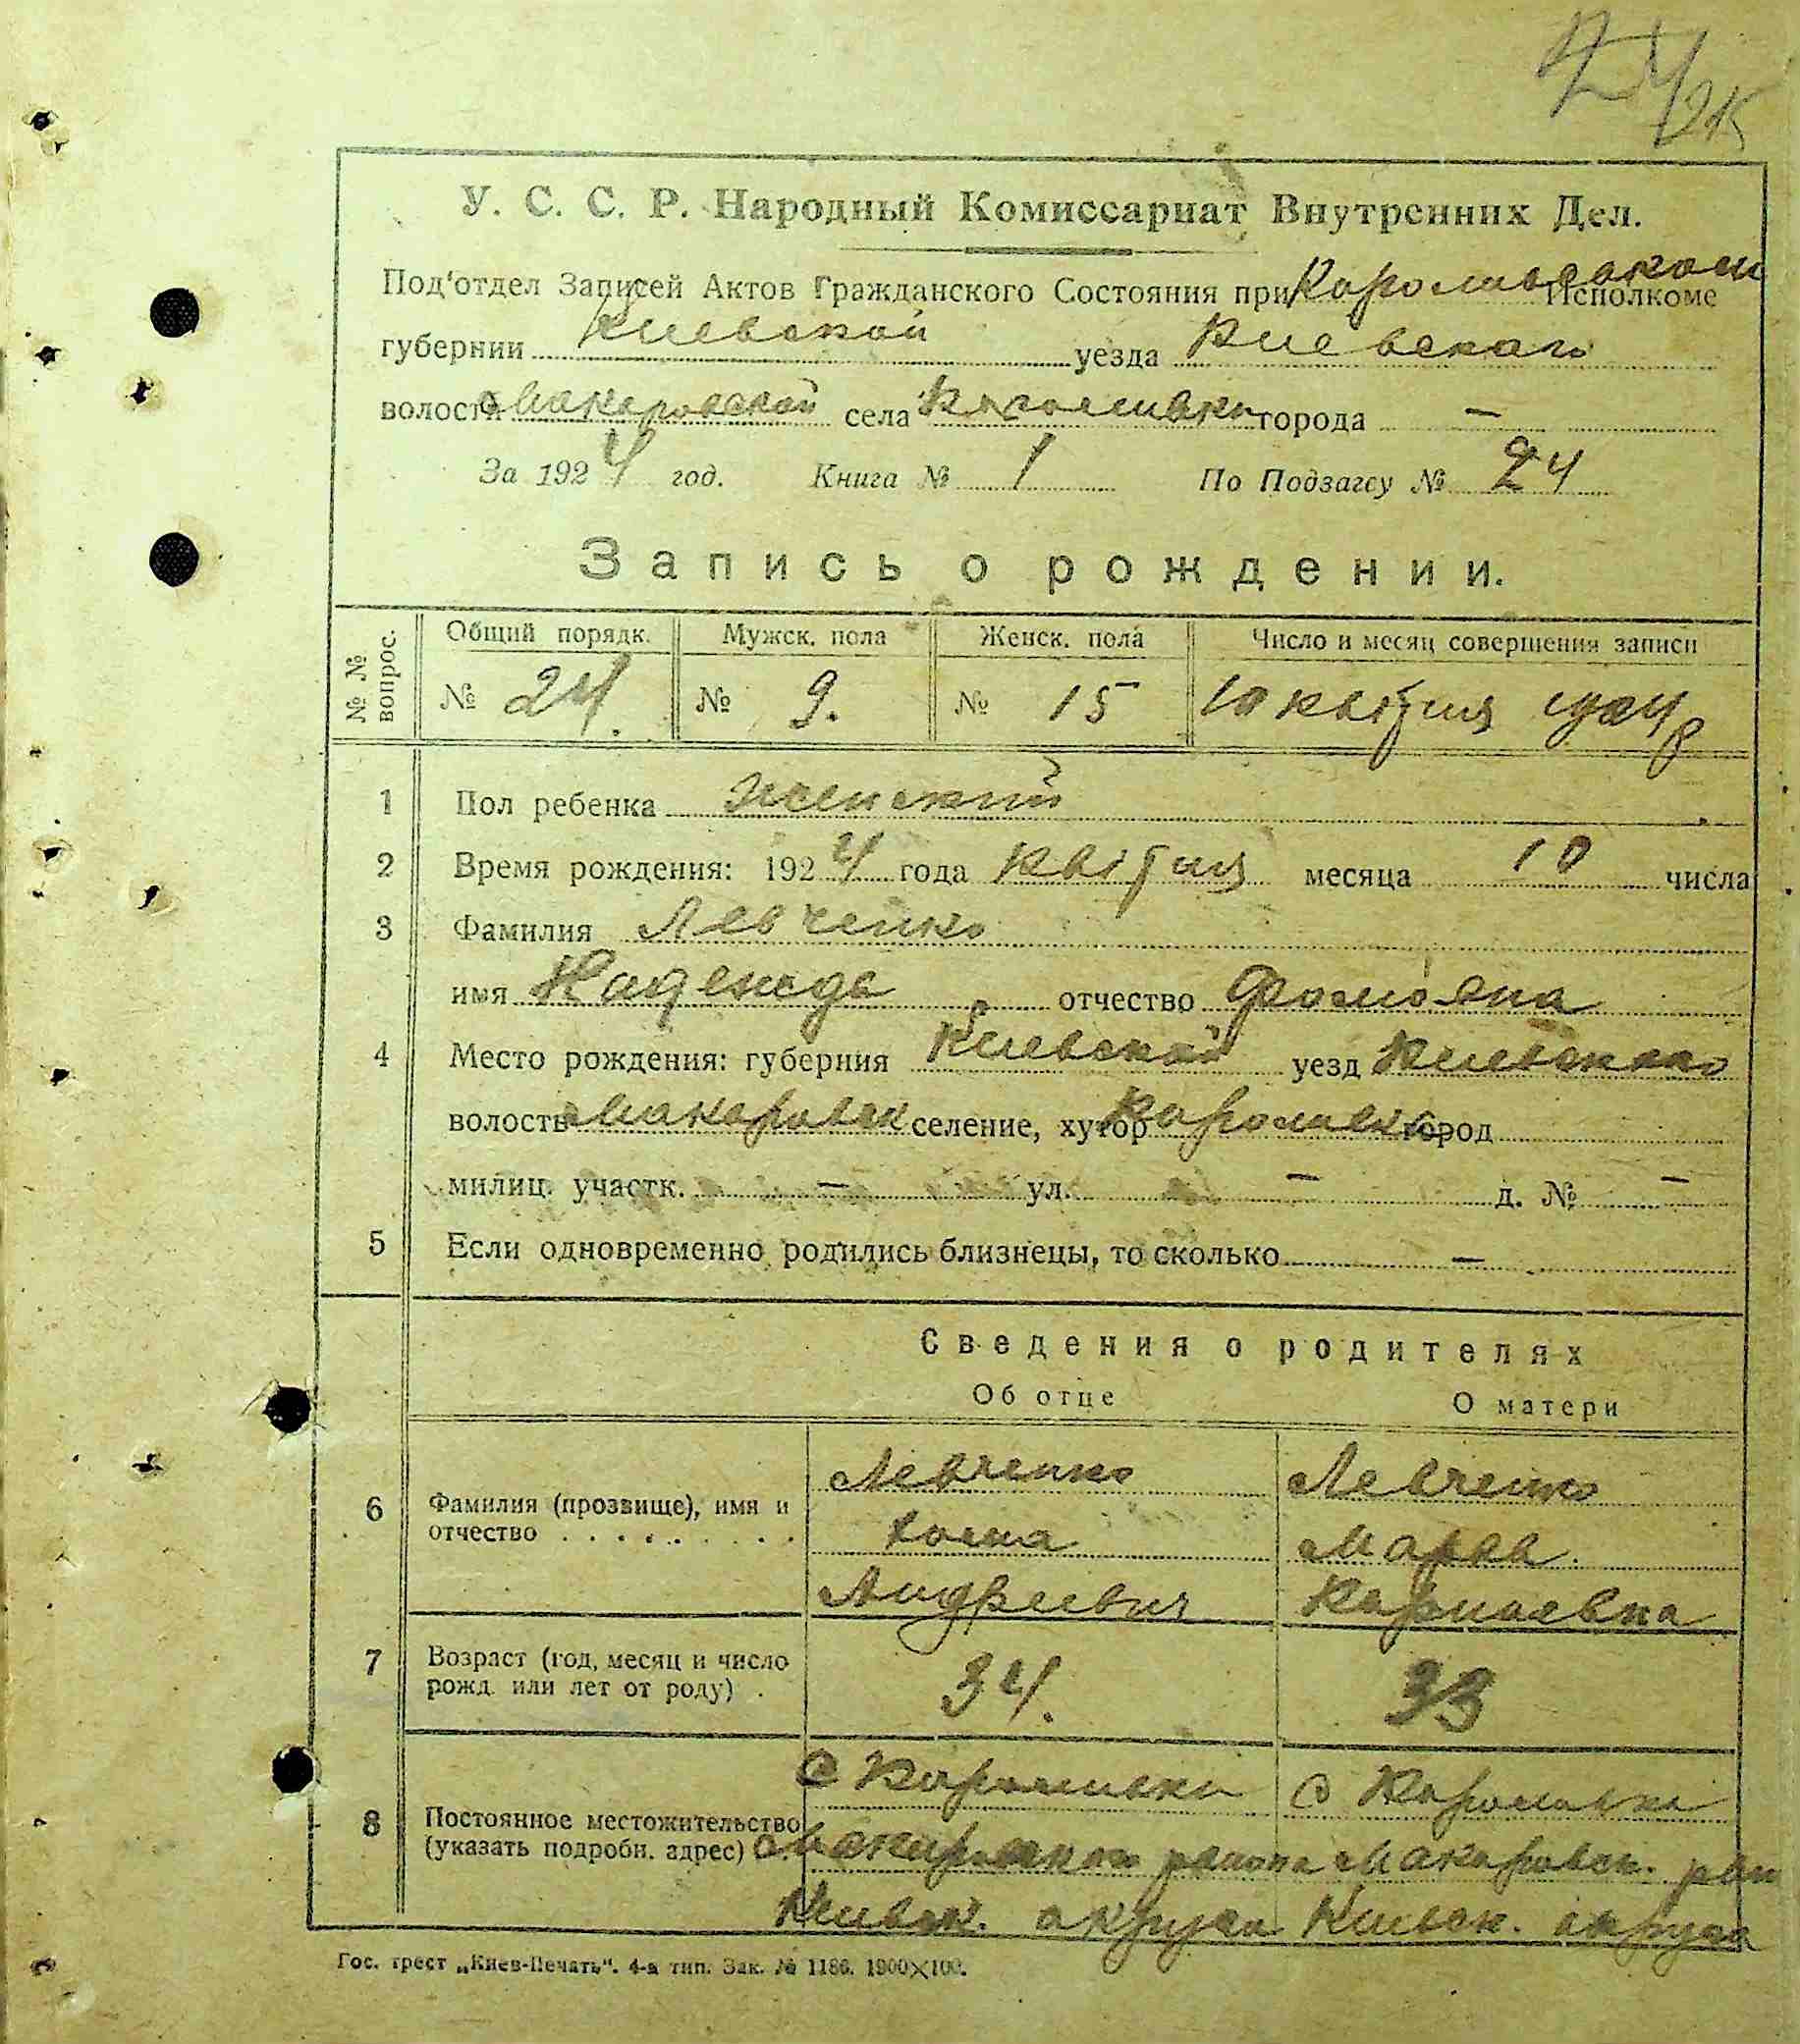 24
У. С. С. Р. Народный Комиссариат Внутренних Дел.
Под'отдел Записей Актов Гражданского Состояния при Королевском Исполкоме
губернии Киевской уезда Киевскаго
волости Макаровской села Короливки города —
За 1924 год. Книга № 1 По Подзагсу № 24
Запись о рождении.
№ № вопрос. Общий порядк. Мужск. пола Женск. пола Число и месяц совершения записи
№ 24. № 9. № 15 10 квітня 1924 р
1 Пол ребенка женский
2 Время рождения: 1924 года квітня месяца 10 числа
3 Фамилия Левченко
имя Надежда отчество Фомовна
4 Место рождения: губерния Киевской уезд Киевского
волость Макаровск селение, хутор Короливка город
милиц. участк. — ул. — д. № —
5 Если одновременно родились близнецы, то сколько —
Сведения о родителях
Об отце О матери
Левченко Левченко
6 Фамилия (прозвище), имя и
отчество . . . . . . . . . Хома Марфа
Андреевич Карповна
7 Возраст (год, месяц и число
рожд. или лет от роду) . 34. 33
с Короливки с Короливки
8 Постоянное местожительство
(указать подробн. адрес) Макаровского района Макаровск. рай
Киевск. округа Киевск. округа
Гос. трест „Киев-Печать". 4-а тип. Зак. № 1186. 1900×100.